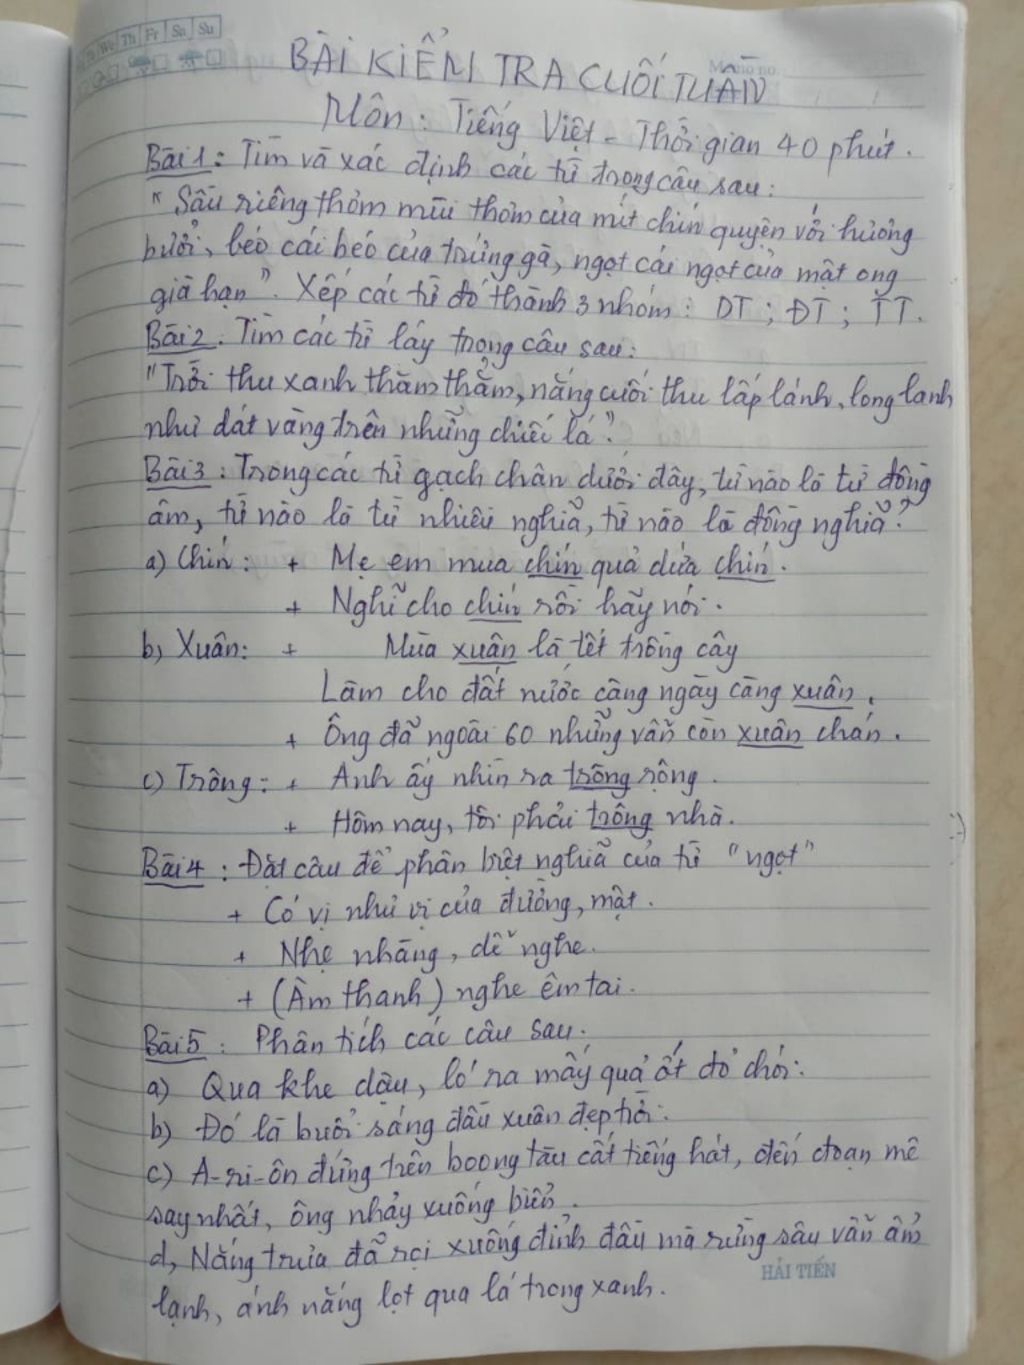 Th Fr Sa Su
BÀI KIỂM TRA CUỐI TUẦN
Môn : Tiếng Việt - Thời gian 40 phút.
Bài 1 : Tìm và xác định các từ trong câu sau :
"Sầu riêng thơm mùi thơm của mít chín quyện với hương
bưởi, béo cái béo của trứng gà, ngọt cái ngọt của mật ong
già hạn". Xếp các từ đó thành 3 nhóm : DT ; ĐT ; TT.
Bài 2 : Tìm các từ láy trong câu sau :
"Trời thu xanh thăm thẳm, nắng cuối thu lấp lánh, long lanh
như dát vàng trên những chiếc lá".
Bài 3 : Trong các từ gạch chân dưới đây, từ nào là từ đồng
âm, từ nào là từ nhiều nghĩa, từ nào là đồng nghĩa?
a) Chín : + Mẹ em mua chín quả dứa chín.
+ Nghĩ cho chín rồi hãy nói.
b) Xuân : + Mùa xuân là tết trồng cây
Làm cho đất nước càng ngày càng xuân.
+ Ông đã ngoài 60 nhưng vẫn còn xuân chán.
c) Trông : + Anh ấy nhìn ra trông rộng.
+ Hôm nay, tôi phải trông nhà.
Bài 4 : Đặt câu để phân biệt nghĩa của từ "ngọt"
+ Có vị như vị của đường, mật.
+ Nhẹ nhàng, dễ nghe.
+ (Âm thanh) nghe êm tai.
Bài 5 : Phân tích các câu sau.
a) Qua khe dậu, ló ra mấy quả ớt đỏ chói.
b) Đó là buổi sáng đầu xuân đẹp trời.
c) A-ri-ôn đứng trên boong tàu cất tiếng hát, đến đoạn mê
say nhất, ông nhảy xuống biển.
d, Nắng trưa đã rọi xuống đỉnh đầu mà rừng sâu vẫn ẩm
HẢI TIẾN
lạnh, ánh nắng lọt qua lá trong xanh.